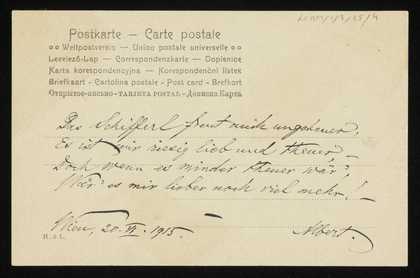 Postkarte — Carte postale
Weltpostverein — Union postale universelle
Levelező-Lap — Correspondenzkarte — Dopisnice
Karta korespondencyjna — Korespondenčni listek
Briefkaart - Cartolina postale - Post card - Brefkort
Открытое письмо - TARJETA POSTAL - Дописна Карта
Das Schifferl freut mich ungeheuer,
Es ist mir riesig lieb und theuer, —
Doch wenn es minder theuer wär',
Wär' es mir lieber noch viel mehr! —
Wien, 20. VI. 1915.
Albert.